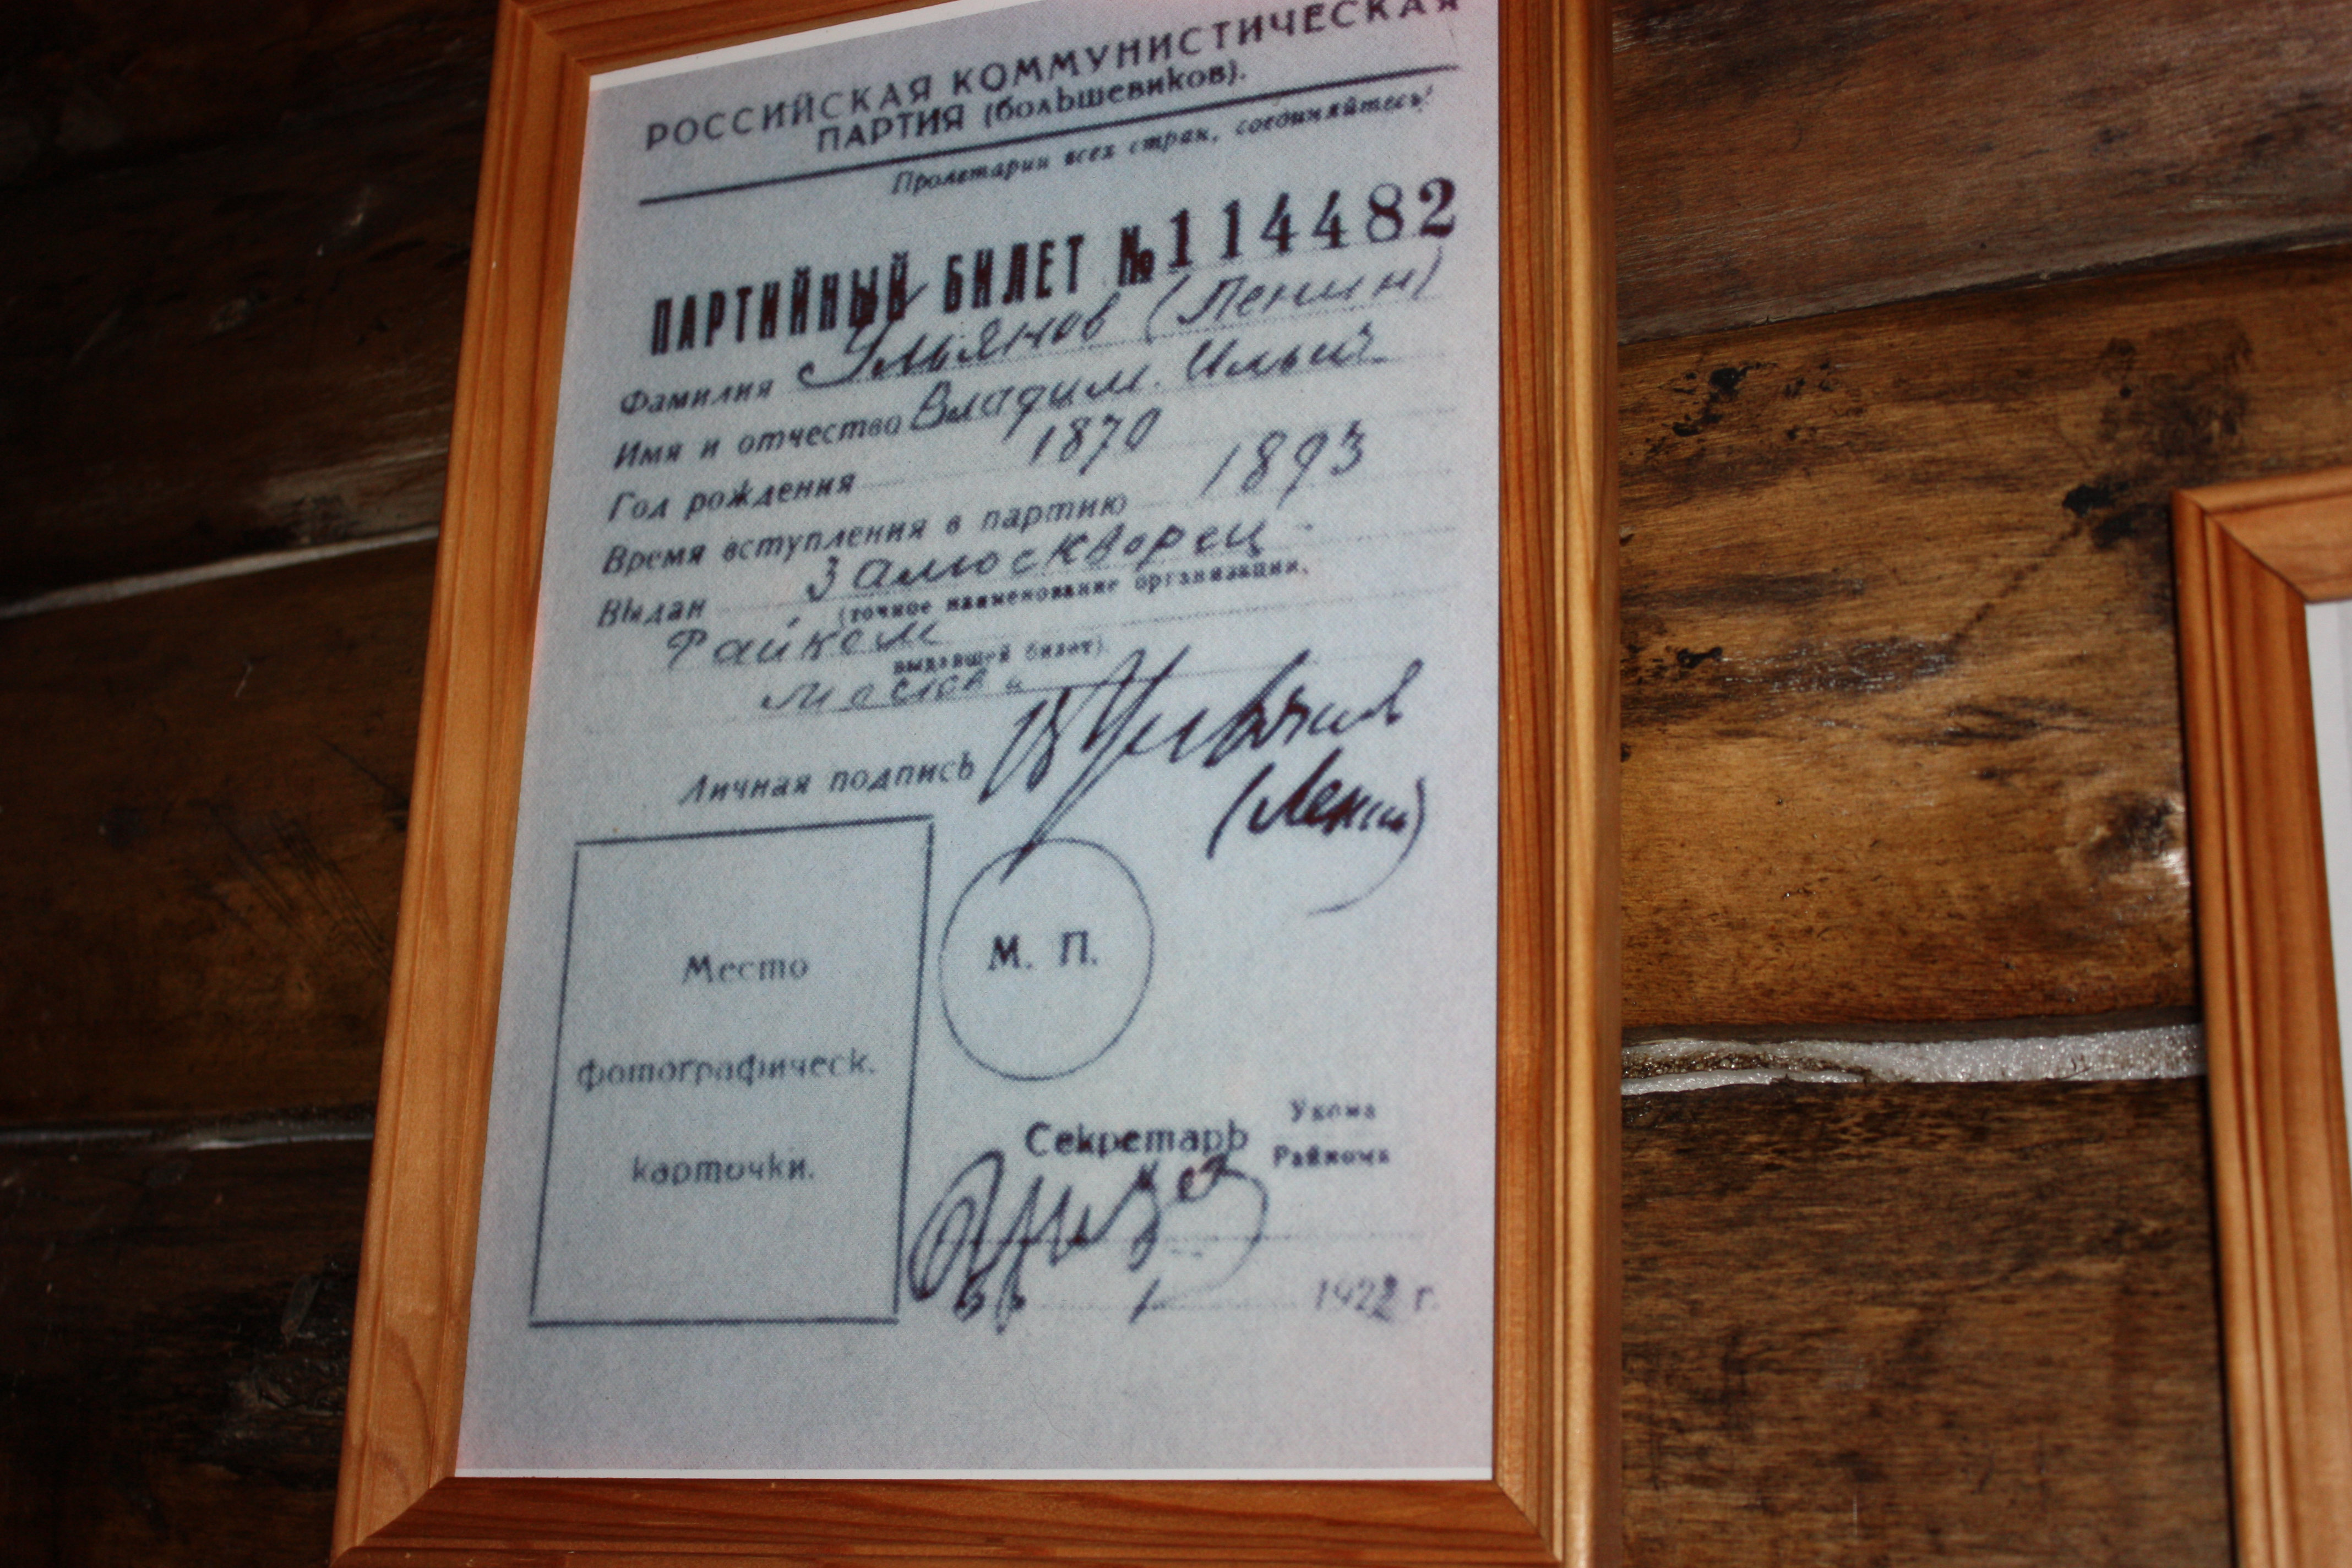 РОССИЙСКАЯ КОММУНИСТИЧЕСКАЯ
ПАРТИЯ (большевиков).
Пролетарии всех стран, соединяйтесь!
ПАРТИЙНЫЙ БИЛЕТ № 114482
Фамилия Ульянов (Ленин)
Имя и отчество Владим. Ильич
Год рождения 1870
Время вступления в партию 1893
Выдан Замоскворец-
(точное наименование организации,
Райком
выдавшей билет).
Москвы
Личная подпись В Ульянов
(Ленин)
Место
фотографическ.
карточки.
М. П.
Секретарь Укома
Райкома
1922 г.